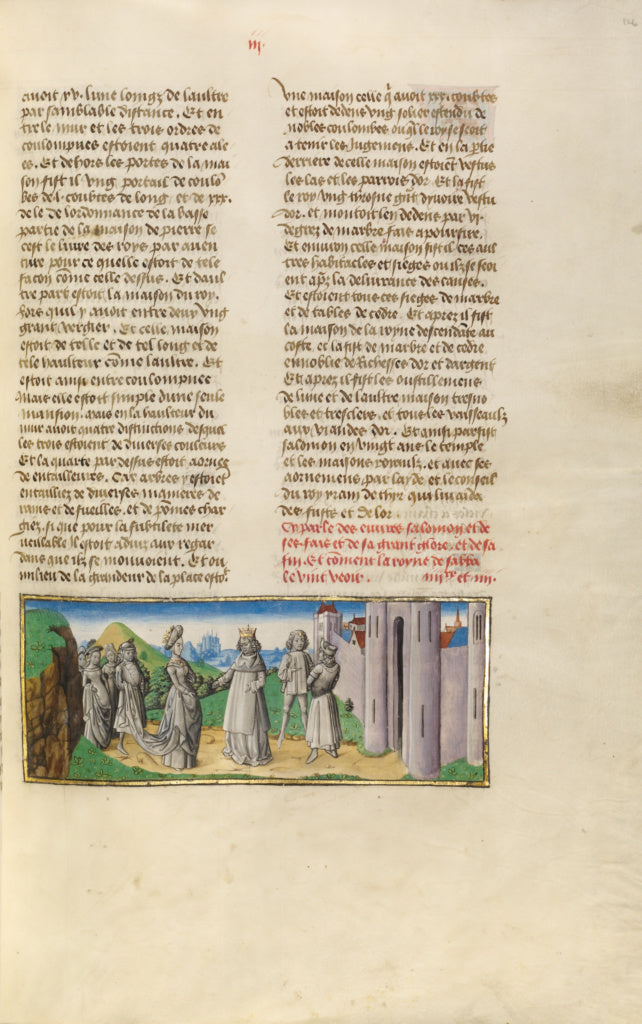 iij.
126
auoit xv. lune loingz de laultre
par samblable distance. Et en
tre le mur et les trois ordres de
coulompnes estoient quatre ale
es. Et dehors les portes de la mai
son fist il vng portail de coulō
bes de l. coubtes de long, et de xxx.
de le de lordonnance de la basse
partie de la maison de pierre se
cest le liure des roys par auen
ture pour ce quelle estoit de tele
facon cōme celle dessus. Et daul
tre part estoit la maison du roy.
hors quil y auoit entre deux vng
grant vergier. Et celle maison
estoit de telle et de tel long et de
tele haulteur cōme laultre. Et
estoit ainsi entre coulompnee
Mais elle estoit simple dune seule
mansion. mais en la haulteur du
mur auoit quatre distinctions desquel
les trois estoient de diuerses couleurs
Et la quarte par dessus estoit aornee
de entailleures. Car arbres y estoiēt
entailliez de diuerses manieres de
rains et de fueilles. et de pōmes char
giez. si que pour la subtilete mer
ueillable il estoit aduiz aux regar
dans que ilz se mouuoient. Et ou
milieu de la grandeur de la place estoit
vne maison celle q̄ auoit xxx. coubtes
et estoit dedens vng solier estendu de
nobles coulombes ou q̄l le roy se seoit
a tenir les Jugemens. Et en la p̄tie
derriere de celle maison estoient vestus
les las et les parrois dor. Et la fist
le roy vng throsne grāt dyuoire vestu
dor. et montoit len dedens par vi.
degrez de marbre fais a pourfire.
Et enuiron celle maison fist il ces aul
tres habitacles et sieges ou ilz se seoi
ent ap̄z la deliurance des causes.
Et estoient tous ces sieges de marbre
et de tables de cedre. Et aprez il fist
la maison de la royne descendāte au
coste. et la fist de marbre et de cedre
ennoblie de Richesses dor et dargent
Et aprez il fist les oustillemens
de lune et de laultre maison tresno
bles et tresclers. et tous les vaisseaulz
aux viandes dor. Et ainsi parfist
salomon en vingt ans le temple
et les maisons royaulz. et auec ses
aornemens par layde et le conseil
du roy yram de thir qui luy aida
des fustz et de lor.
Cy parle des euures salomon et de
ses fais et de sa grant glore. et de sa
fin. Et cōment la royne de sabba
le vint veoir. iiijxx et iiij.